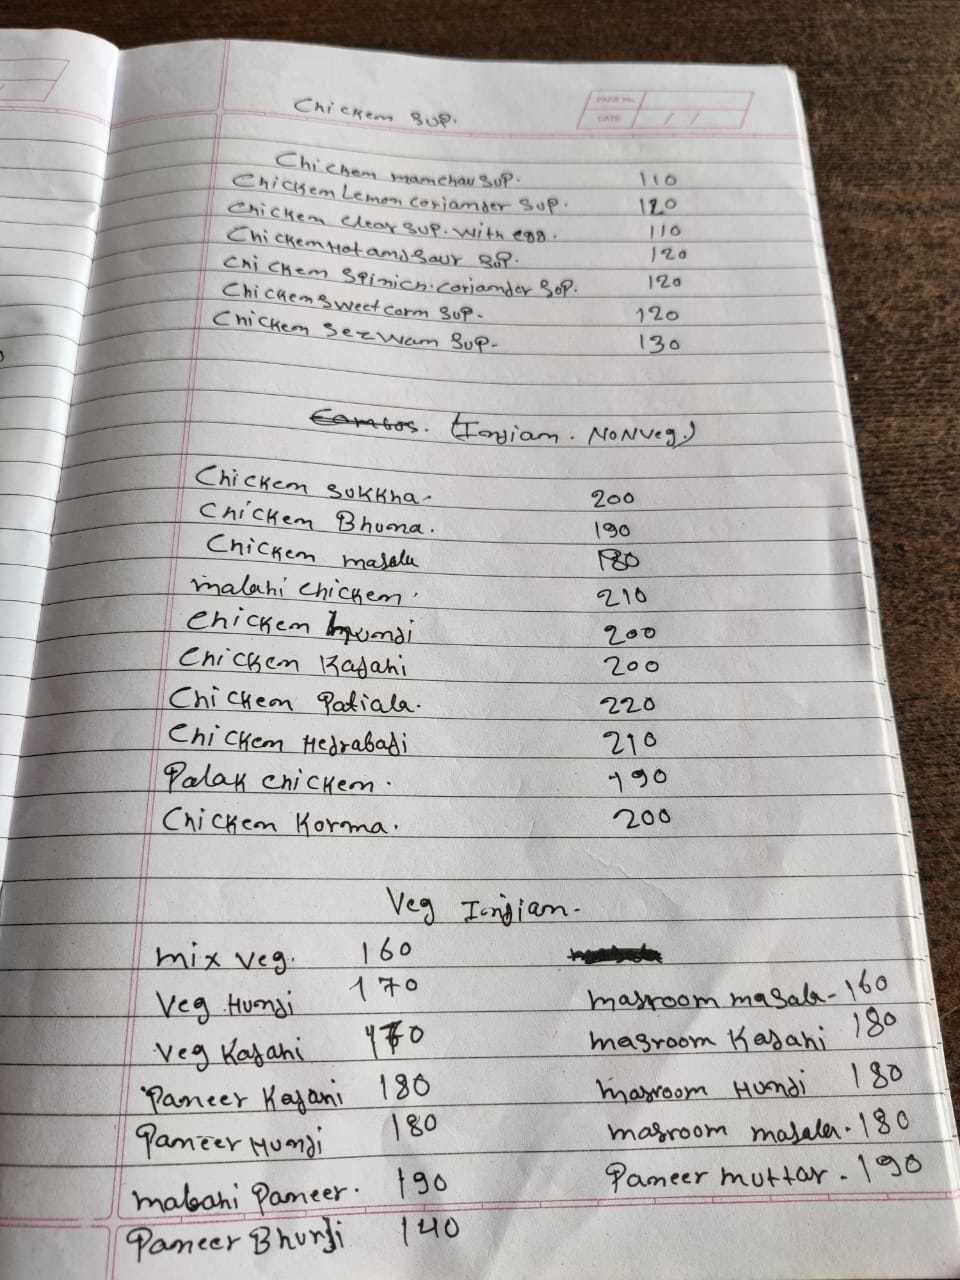 Chickem Sup.
PAGE No.
DATE / /
Chickem mamchau Sup. 110
Chickem Lemon coriamder Sup. 120
Chickem Clear Sup. With egg. 110
Chickem Hot amd Saur Sup. 120
Chickem Spinich. coriamder Sup. 120
Chickem Sweet corm Sup. 120
Chickem Sezwam Sup. 130
Combos. (Indiam. NONVeg.)
Chickem Sukkha. 200
Chickem Bhuma. 190
Chickem masala 180
malahi chickem. 210
Chickem Humdi 200
Chickem Kadahi 200
Chickem Patiala. 220
Chickem Hedrabadi 210
Palak chickem. 190
Chickem Korma. 200
Veg Indiam.
mix veg. 160
Veg Humdi 170
masroom masala - 160
Veg Kadahi 170
masroom Kadahi 180
Pameer Kadani 180
masroom Humdi 180
Pameer Humdi 180
masroom masala. 180
malahi Pameer. 190
Pameer muttar. 190
Pameer Bhurji 140